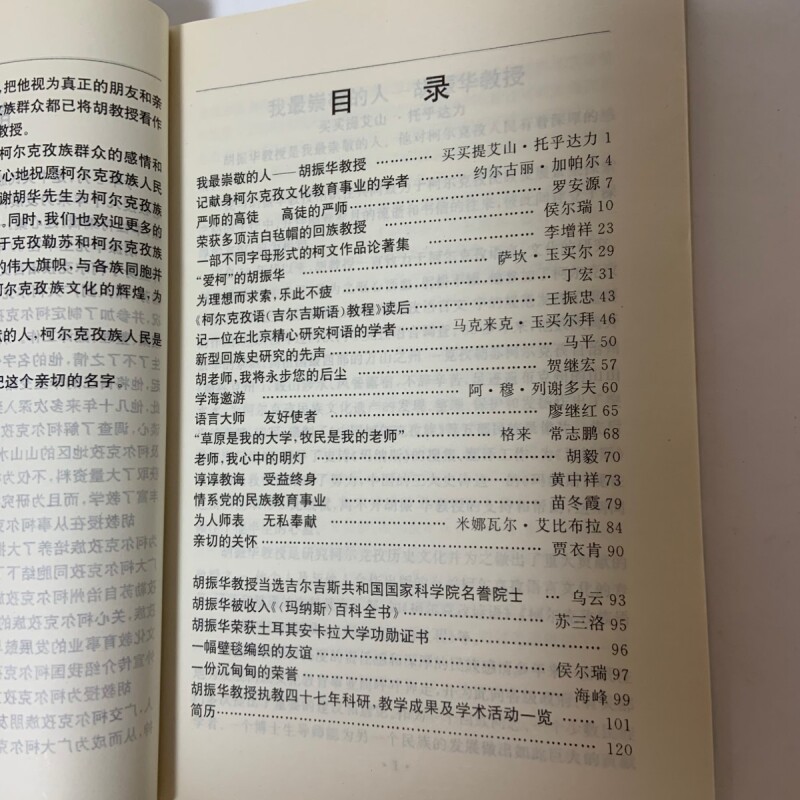 把他视为真正的朋友和亲
族群众都已将胡教授看作
教授。
柯尔克孜族群众的感情和
心地祝愿柯尔克孜族人民
谢胡华先生为柯尔克孜族
。同时,我们也欢迎更多的
于克孜勒苏和柯尔克孜族
的伟大旗帜,与各族同胞并
尔克孜族文化的辉煌,为
的人,柯尔克孜族人民是
记这个亲切的名字。
目 录
我最崇敬的人——胡振华教授 ………… 买买提艾山·托乎达力 1
记献身柯尔克孜文化教育事业的学者 ……… 约尔古丽·加帕尔 4
严师的高徒 高徒的严师 ……………………… 罗安源 7
荣获多顶洁白毡帽的回族教授 ……………………… 侯尔瑞 10
一部不同字母形式的柯文作品论著集 ……………………… 李增祥 24
“爱柯”的胡振华 ……………………… 萨坎·玉买尔 29
为理想而求索,乐此不疲 ……………………… 丁宏 31
《柯尔克孜语(吉尔吉斯语)教程》读后 ……………… 王振忠 43
记一位在北京精心研究柯语的学者 ……… 马克来克·玉买尔拜 46
新型回族史研究的先声 ……………………… 马平 50
胡老师,我将永步您的后尘 ……………………… 贺继宏 57
学海遨游 ……………………… 阿·穆·列谢多夫 60
语言大师 友好使者 ……………………… 廖继红 65
“草原是我的大学,牧民是我的老师” ……………… 格来 常志鹏 68
老师,我心中的明灯 ……………………… 胡毅 70
谆谆教诲 受益终身 ……………………… 黄中祥 73
情系党的民族教育事业 ……………………… 苗冬霞 79
为人师表 无私奉献 ……………… 米娜瓦尔·艾比布拉 84
亲切的关怀 ……………………… 贾衣肯 90
胡振华教授当选吉尔吉斯共和国国家科学院名誉院士 … 乌云 93
胡振华被收入《〈玛纳斯〉百科全书》 ……………… 苏三洛 95
胡振华荣获土耳其安卡拉大学功勋证书 ……………………… 96
一幅壁毯编织的友谊 ……………………… 侯尔瑞 97
一份沉甸甸的荣誉 ……………………… 海峰 99
胡振华教授执教四十七年科研,教学成果及学术活动一览 …… 101
简历 ……………………… 120
· 1 ·